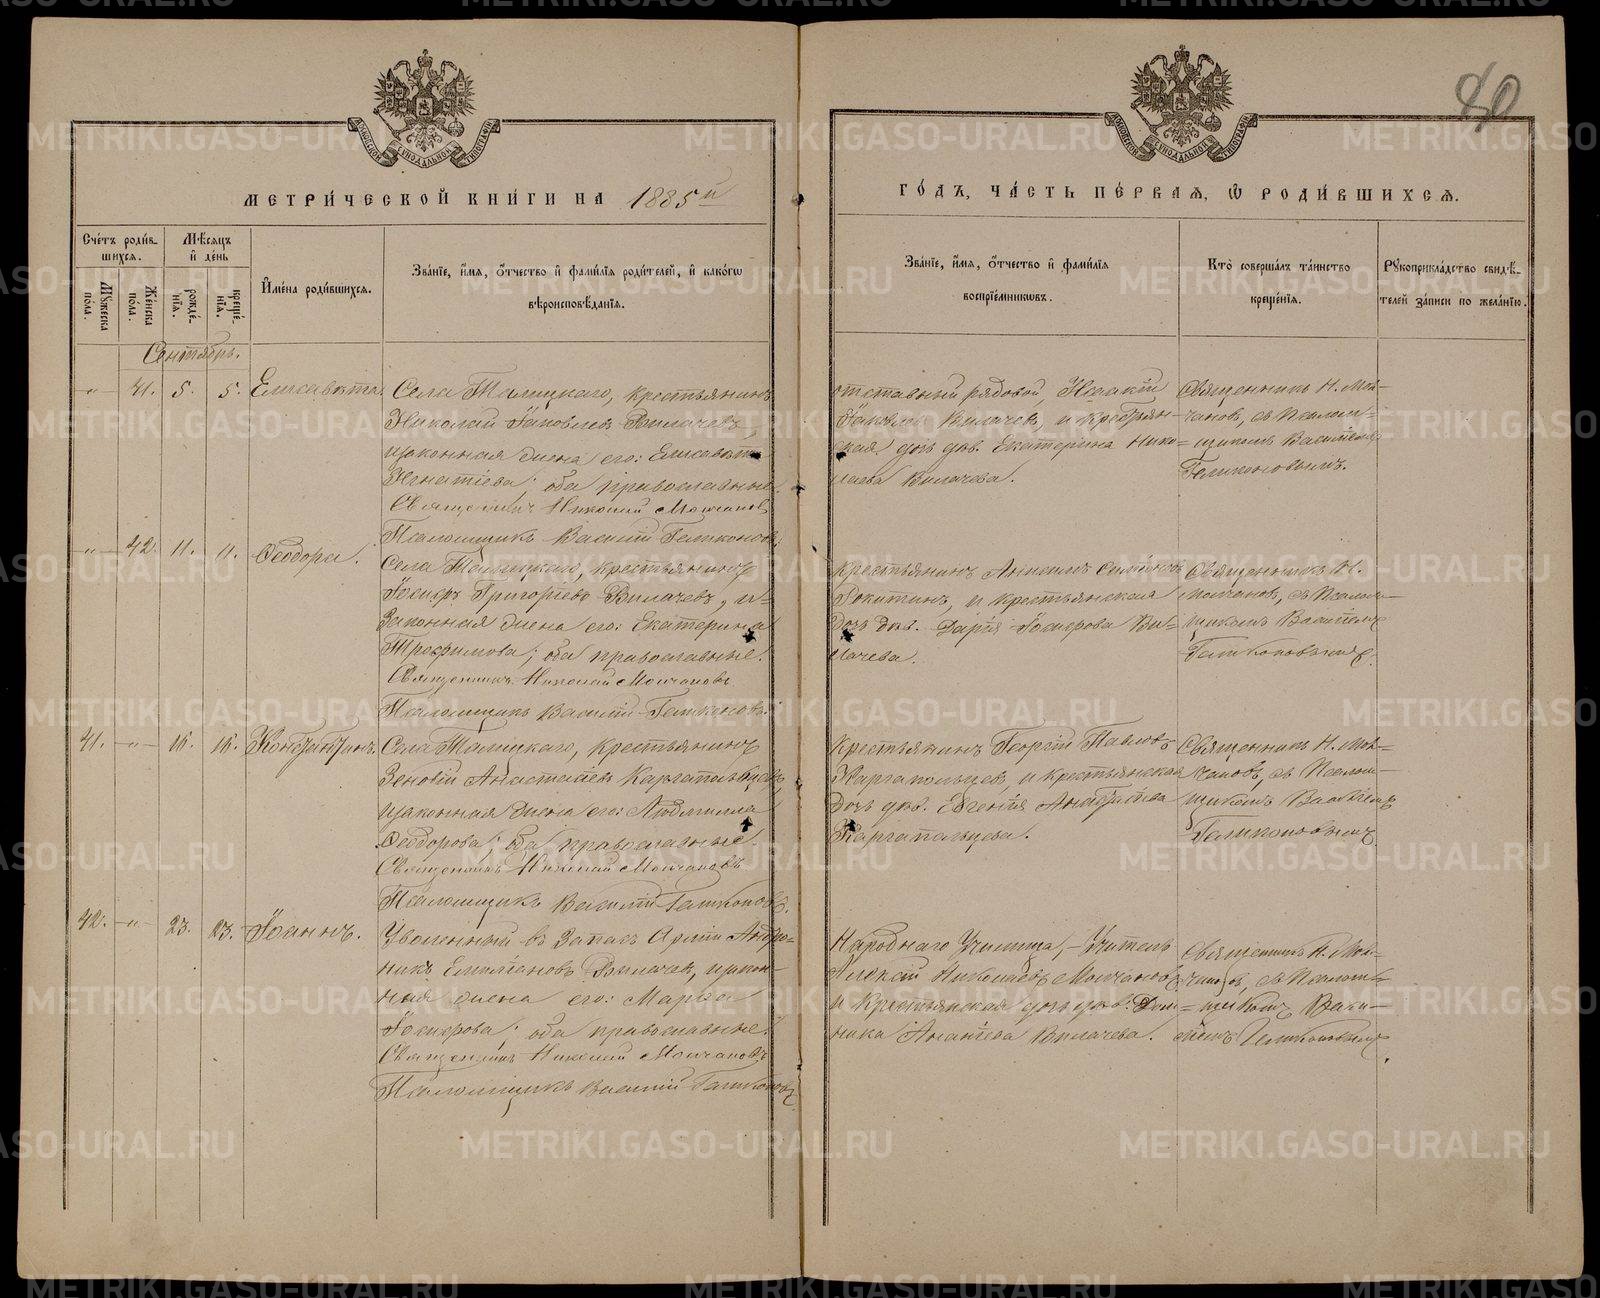 80
МЕТРИ́ЧЕСКОЙ КНИ́ГИ НА 1885й
ГО́ДЪ, ЧА́СТЬ ПЕ́РВАЯ, Ѡ РОДИ́ВШИХСЯ.
Сче́тъ роди́в-
шихся.
Мѣ́сяцъ
и де́нь
Му́жеска
пола.
Же́нска
пола.
рожде́-
нія.
креще́-
нія.
И҆мена роди́вшихся.
Зва́нїе, и҆́мя, ѻ҆́тчество и҆ фами́лїя роди́телей, и҆ како́гѡ
вѣроисповѣ́данїя.
Зва́нїе, и҆́мя, ѻ҆́тчество и҆ фами́лїя
воспрїе́мниковъ.
Кто̀ соверша́лъ та́инство
креще́нїя.
Рꙋкоприкла́дство свидѣ́-
телей за́писи по жела́нїю.
Сентябрь.
-"- 41. 5. 5. Елисавета.
Села Талицкаго, крестьянинъ
Николай Іаковлевъ Вилачевъ,
и законная жена его: Елисавета
Игнатіева; оба православные.
Священникъ Николай Молчановъ
Псаломщикъ Василій
отставный рядовой, Исаакій
Іаковлевъ Вилачевъ, и крестьян-
ская дочь дѣв. Екатерина Нико-
лаева Вилачева.
Священникъ Н. Мол-
чановъ, съ Псалом-
щикомъ Василіемъ
-"- 42. 11. 11. Ѳеодора.
Села Талицкаго, крестьянинъ
Іосифъ Григоріевъ Вилачевъ, и
законная жена его: Екатерина
Трофимова; оба православные.
Священникъ Николай Молчановъ
Псаломщикъ Василій
Крестьянинъ
и крестьянская
дочь дѣв. Дарія Іосифова Ви-
лачева.
Священникъ Н.
Молчановъ, съ Псалом-
щикомъ Василіемъ
41. -"- 16. 16. Константинъ.
Села Талицкаго, крестьянинъ
Зеновій Анастасіевъ Каргапольцевъ,
и законная жена его: Людмилла
Ѳеодорова; оба православные.
Священникъ Николай Молчановъ
Псаломщикъ Василій
Крестьянинъ Георгій Павловъ
Каргапольцевъ, и крестьянская
дочь дѣв. Евгенія Анастасіева
Каргапольцева.
Священникъ Н. Мол-
чановъ, съ Псалом-
щикомъ Василіемъ
42. -"- 23. 23. Іоаннъ.
Уволенный въ запасъ Арміи Андро-
никъ Емиліановъ Вилачевъ, и закон-
ная жена его: Марѳа
Іосифова; оба православные.
Священникъ Николай Молчановъ
Псаломщикъ Василій
Народнаго Училища, Учитель
Алексій Николаевъ Молчановъ
и крестьянская дочь дѣв. Дом-
ника Ананіева Вилачева.
Священникъ Н. Мол-
чановъ, съ Псалом-
щикомъ Васи-
ліемъ
METRIKI.GASO-URAL.RU